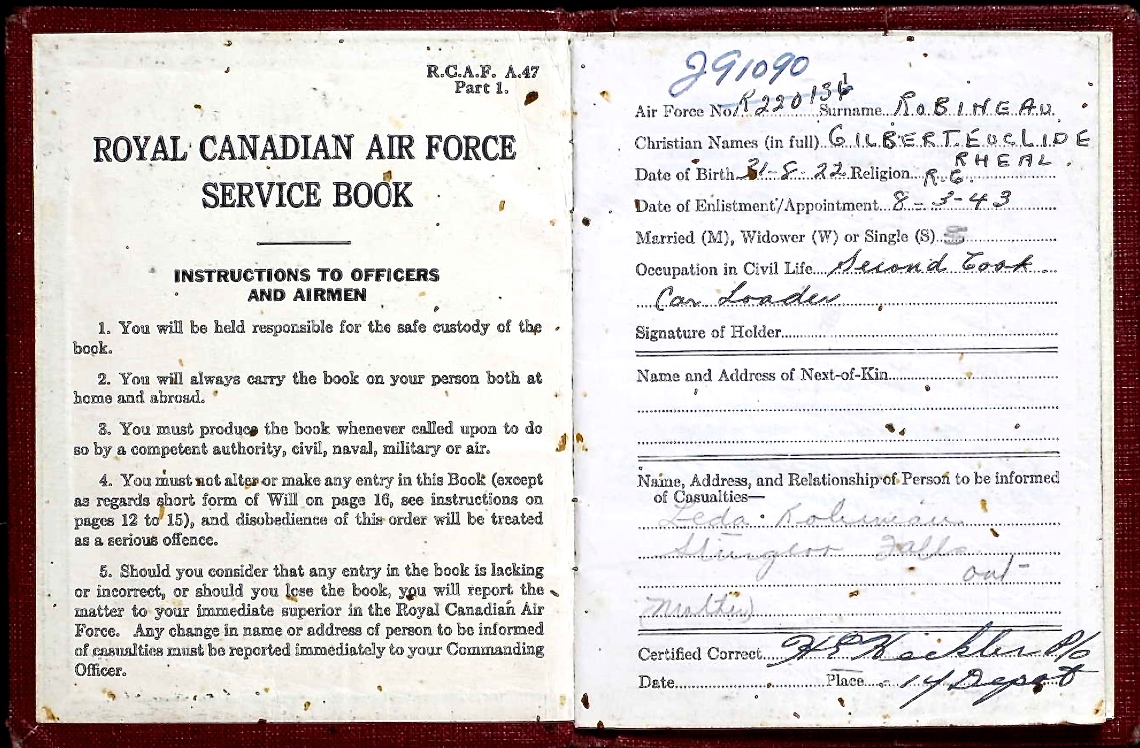 R.C.A.F. A.47
Part 1.
ROYAL CANADIAN AIR FORCE
SERVICE BOOK
INSTRUCTIONS TO OFFICERS
AND AIRMEN
1. You will be held responsible for the safe custody of the
book.
2. You will always carry the book on your person both at
home and abroad.
3. You must produce the book whenever called upon to do
so by a competent authority, civil, naval, military or air.
4. You must not alter or make any entry in this Book (except
as regards short form of Will on page 16, see instructions on
pages 12 to 15), and disobedience of this order will be treated
as a serious offence.
5. Should you consider that any entry in the book is lacking
or incorrect, or should you lose the book, you will report the
matter to your immediate superior in the Royal Canadian Air
Force. Any change in name or address of person to be informed
of casualties must be reported immediately to your Commanding
Officer.
J91090
Air Force No. R220136 Surname ROBINEAU
Christian Names (in full) GILBERT EUCLIDE
RHEAL
Date of Birth 31-8-22 Religion R.C.
Date of Enlistment/Appointment 8-3-43
Married (M), Widower (W) or Single (S) S
Occupation in Civil Life Second Cook
Car Loader
Signature of Holder
Name and Address of Next-of-Kin
Name, Address, and Relationship of Person to be informed
of Casualties—
Leda Robineau
Sturgeon Falls
Ont
Mother
Certified Correct P/O
Date Place 14 Depot